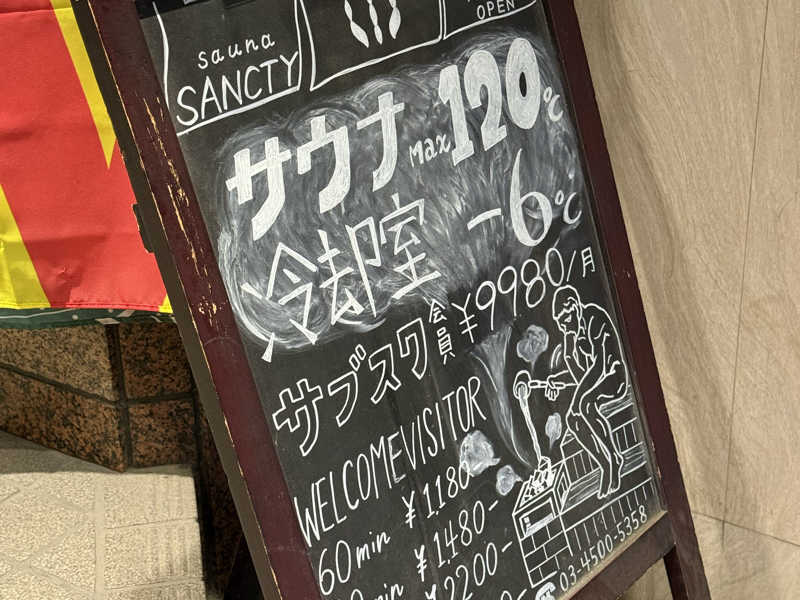 sauna
SANCTY
OPEN
サウナ Max 120℃
冷却室 -6℃
サブスク会員 ¥9980/月
WELCOME VISITOR
60min ¥1180-
min ¥1480-
¥2200-
☎03-4500-5358